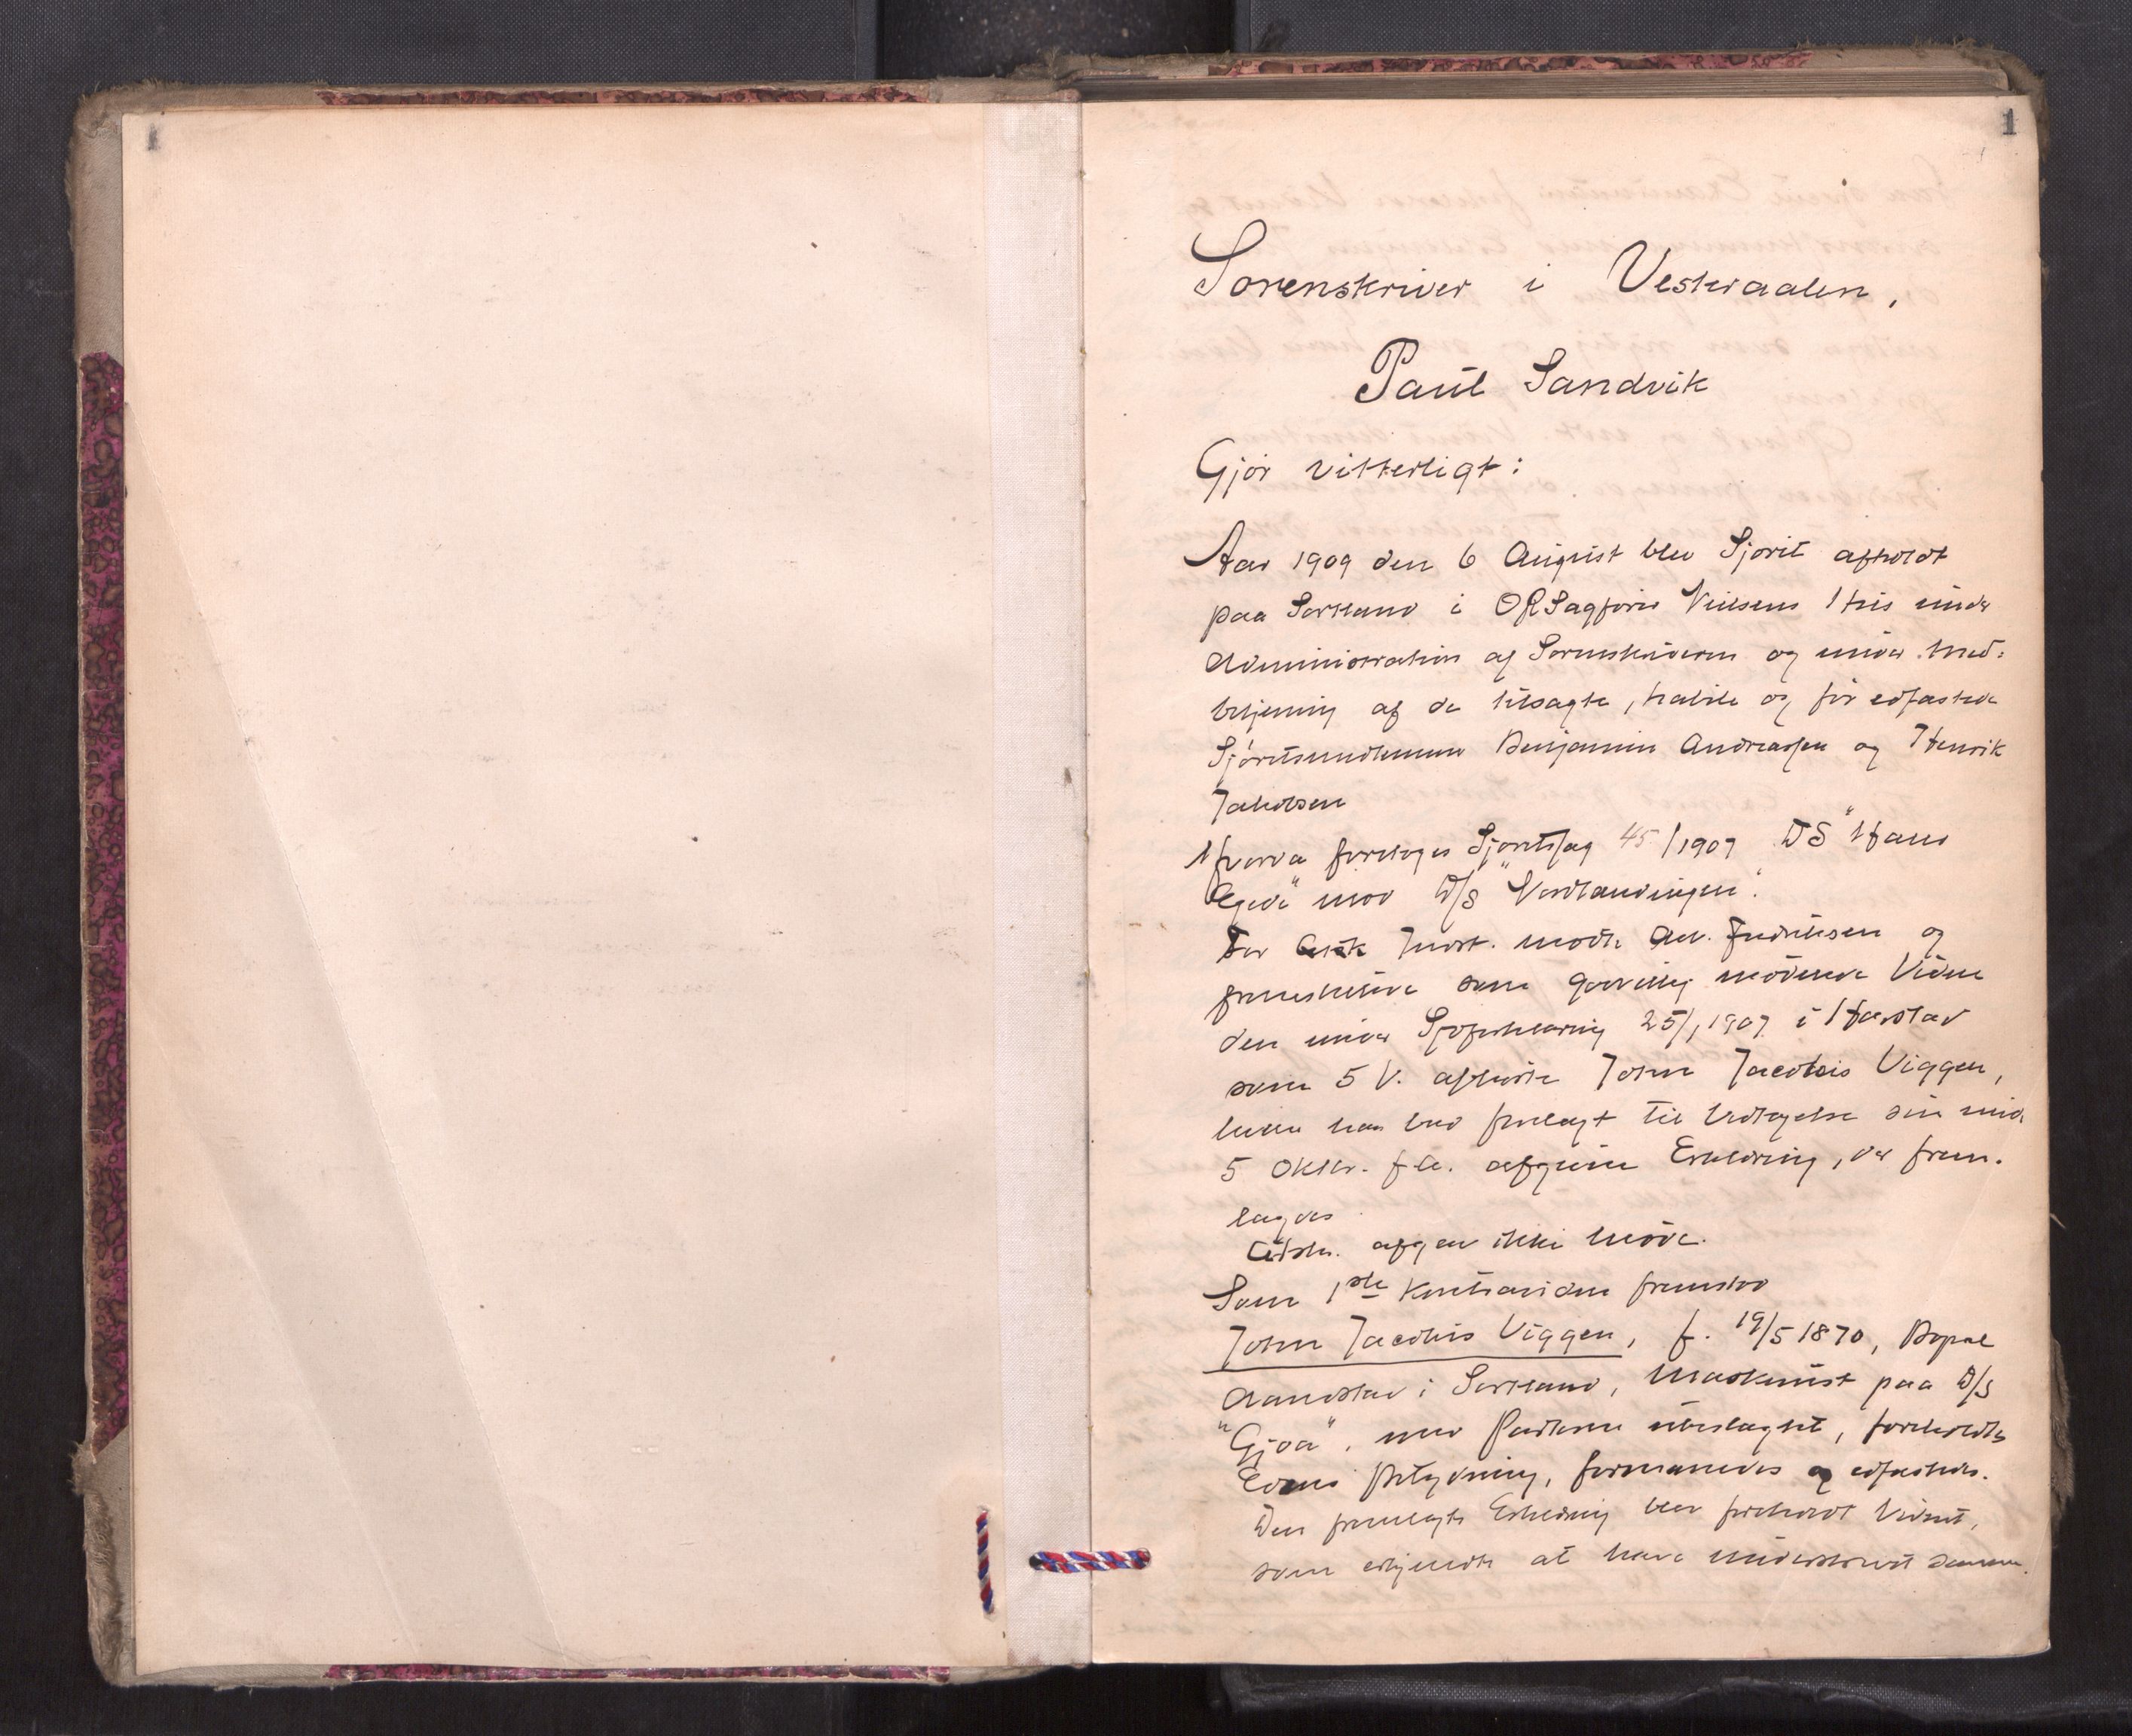 1
1
Sorenskriver i Vesteraalen,
Paul Sandvik
Gjør vitterligt:
Aar 1909 den 6 August blev Sjøret afholdt
paa Sortland i ORSagfører Nielsens Hus under
Administration af Sorenskriveren og under Med-
betjening af de tilsagte, habile og før edfæstede
Sjøretsmedlemmer Benjamin Andreassen og Henrik
Jakobsen
Hvorda foretoges Sjøretssag 45/1907 DS "Hans
Egede" mod D/S "Nordlændingen".
For mødte Adv. Fredriksen og
fremstillede som godvillig mødende Vidne
den under Sjøforklaring 25/1 1907 i Harstad
som 5 V. afhørte John Jacobus Viggen,
hvem han bad forelagt til Vedtagelse sin und.
5 Oktbr. f. A. afgivne Erklæring, der frem-
lagdes
Citstn. afgav ikke Møde.
Som 1ste Kontravidne fremstod
John Jacobus Viggen, f. 19/5 1870, Bopæl
i Sortland, Maskinist paa D/S
"Gjøa", med Parterne ubeslægtet, foreholdtes
Edens Betydning, formanedes og edfæstedes.
Den fremlagte Erklæring blev foreholdt Vidnet,
som erkjendte at have underskrevet denne.